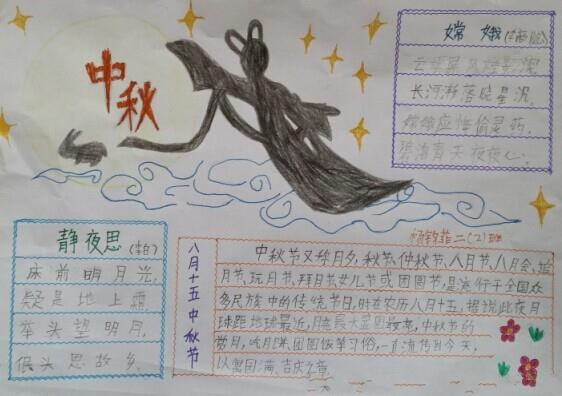 中秋
嫦娥
云母屏风烛影深,
长河渐落晓星沉。
嫦娥应悔偷灵药,
碧海青天夜夜心。
静夜思(李白)
床前明月光,
疑是地上霜,
举头望明月,
低头思故乡。
二(2)班
八月十五中秋节
中秋节又称月夕、秋节、仲秋节、八月节、八月会、追
月节、玩月节、拜月节、女儿节或团圆节,是流行于全国众
多民族中的传统节日,时在农历八月十五;据说此夜月
球距地球最近,月亮最大最圆最亮,中秋节的
赏月,吃月饼、团圆饭等习俗,一直流传到今天,
以寓团满、吉庆之意。